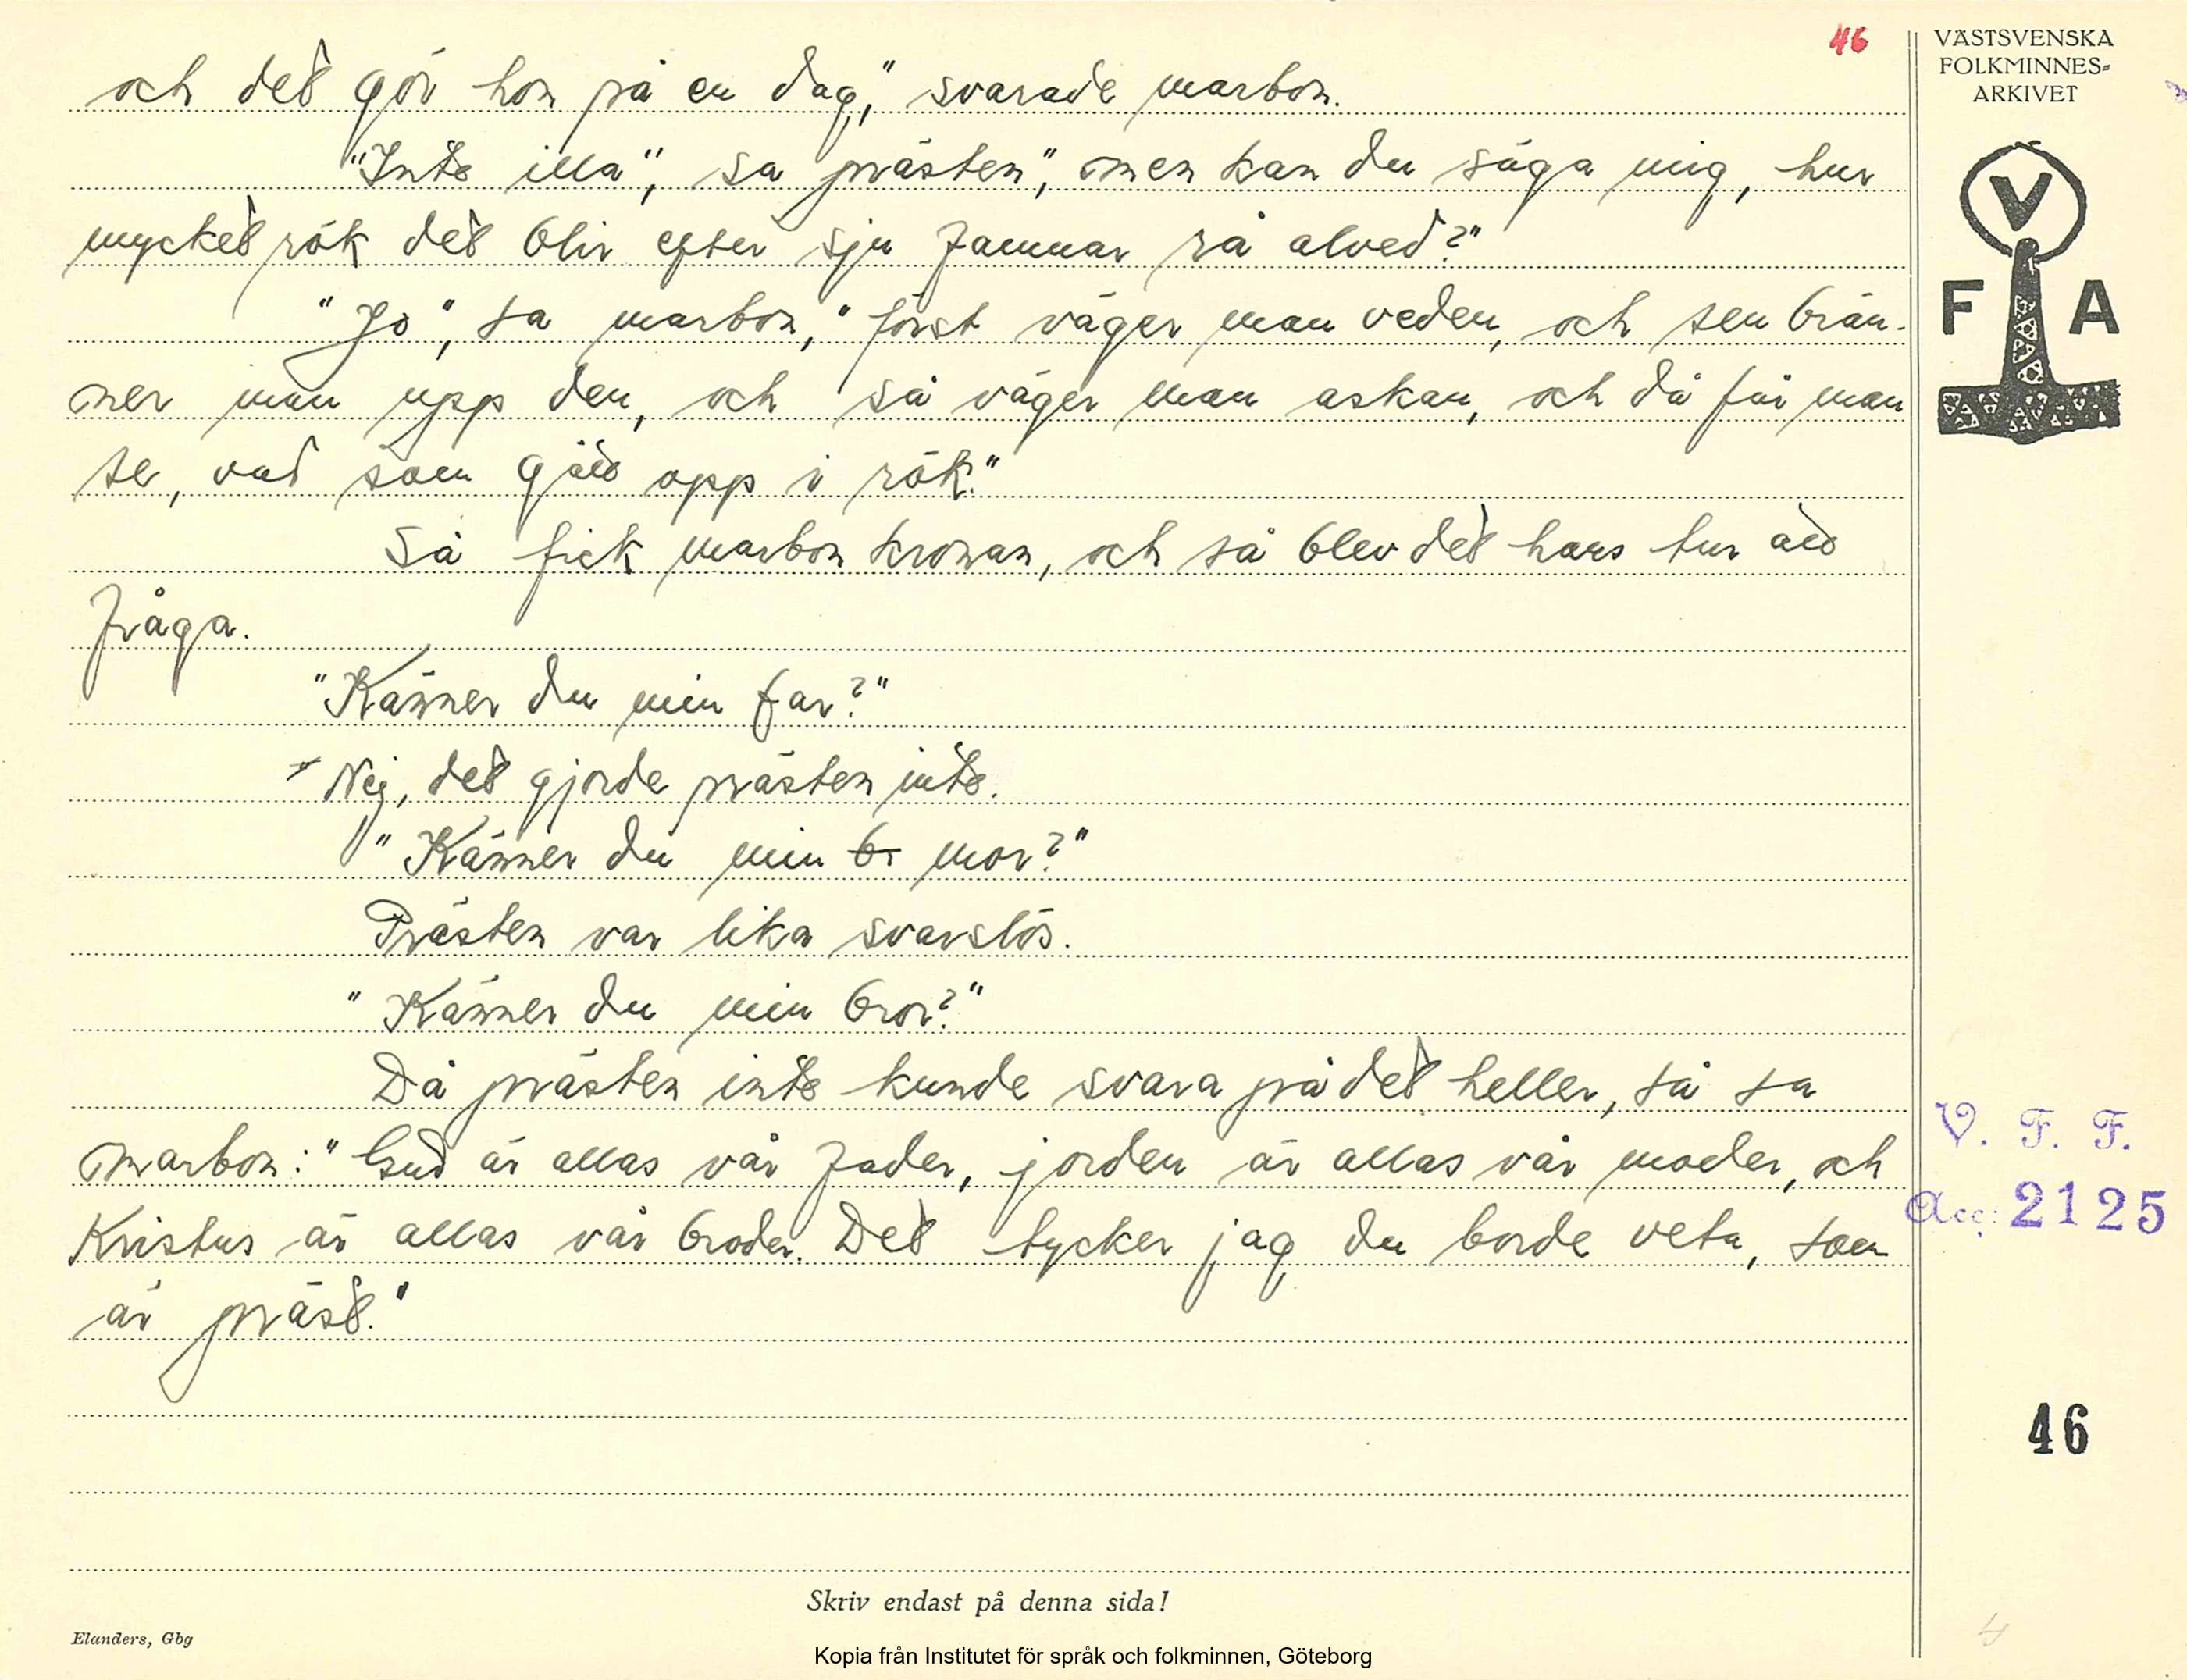 46
VÄSTSVENSKA
FOLKMINNES=
ARKIVET
V
F A
och det gör hon på en dag," svarade marbon.
"Inte illa", sa prästen, "men kan du säga mig, hur
mycket rök det blir efter sju famnar rå alved?"
"Jo", sa marbon, "först väger man veden, och sen brän-
ner man upp den, och så väger man askan, och då får man
se, vad som gått opp i rök."
Så fick marbon kronan, och så blev det hans tur att
fråga.
"Känner du min far?"
Nej, det gjorde prästen inte.
"Känner du min br mor?"
Prästen var lika svarslös.
"Känner du min bror?"
Då prästen inte kunde svara på det heller, så sa
marbon: "Gud är allas vår fader, jorden är allas vår moder, och
Kristus är allas vår broder. Det tycker jag du borde veta, som
är präst."
V. F. F.
Acc: 2125
46
Skriv endast på denna sida!
Elanders, Gbg
4
Kopia från Institutet för språk och folkminnen, Göteborg